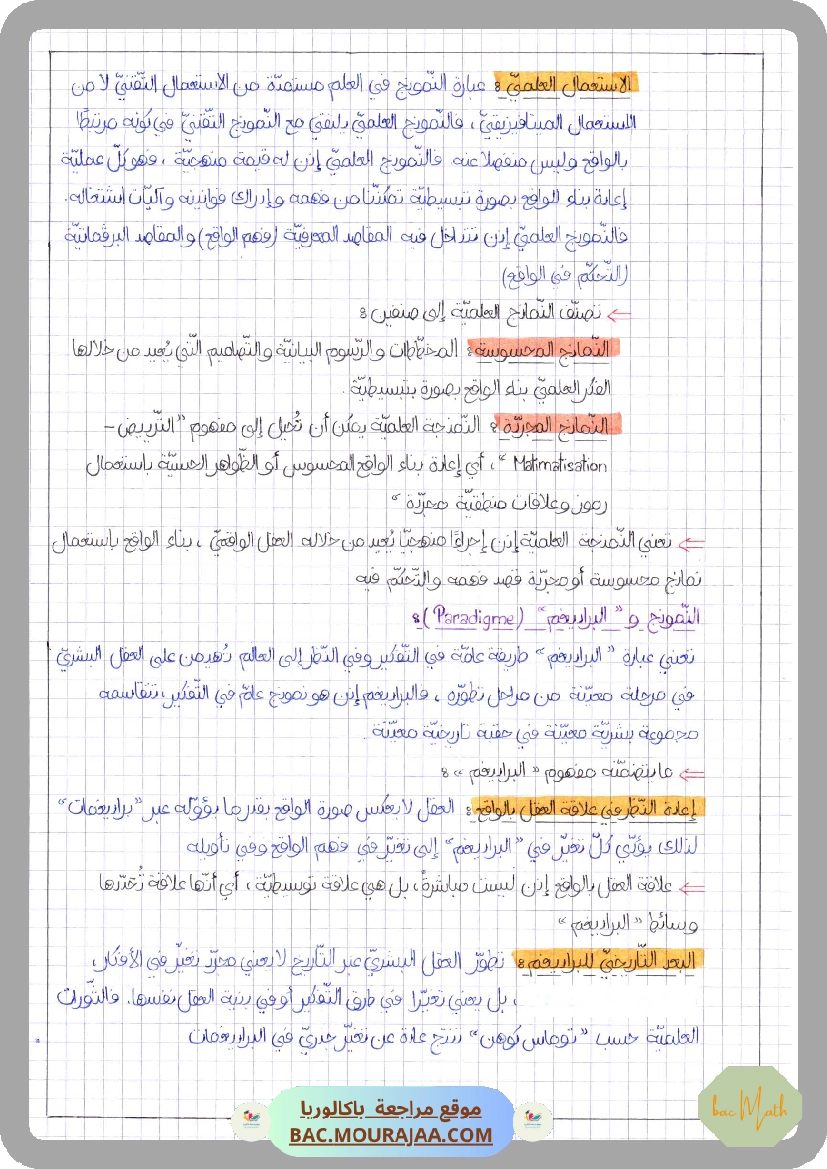 الاستعمال العلميّ : عبارة النّموذج في العلم مستمدّة من الاستعمال التّقنيّ لا من
الاستعمال الميتافيزيقيّ ، فالنّموذج العلميّ يلتقي مع النّموذج التّقنيّ في كونه مرتبطًا
بالواقع وليس منفصلا عنه. فالنّموذج العلميّ إذن له قيمة منهجيّة ، فهو كلّ عمليّة
إعادة بناء للواقع بصورة تبسيطيّة تمكّننا من فهمه وإدراك قوانينه وآليّات اشتغاله.
فالنّموذج العلميّ إذن تتداخل فيه المقاصد المعرفيّة (فهم الواقع) والمقاصد البرقماتيّة
(التّحكّم في الواقع)
⇐ تصنّف النّماذج العلميّة إلى صنفين :
النّماذج المحسوسة : المخطّطات والرّسوم البيانيّة والتّصاميم الّتي يُعيد من خلالها
الفكر العلميّ بناء الواقع بصورة تبسيطيّة .
النّماذج المجرّدة : النّمذجة العلميّة يمكن أن تُحيل إلى مفهوم "التّرييض -
Matimatisation " ، أي إعادة بناء الواقع المحسوس أو الظّواهر الحسّيّة باستعمال
رموز وعلاقات منطقيّة مجرّدة "
⇐ تعني النّمذجة العلميّة إذن إجراءًا منهجيّا يُعيد من خلاله العقل الواقعيّ ، بناء الواقع باستعمال
نماذج محسوسة أو مجرّدة قصد فهمه والتّحكّم فيه
النّموذج و " البراديغم" (Paradigme) :
تعني عبارة " البراديغم" طريقة عامّة في التّفكير وفي النّظر إلى العالم تُهيمن على العقل البشريّ
في مرحلة معيّنة من مراحل تطوّره ، فالبراديغم إذن هو نموذج عامّ في التّفكير ، تتقاسمه
مجموعة بشريّة معيّنة في حقبة تاريخيّة معيّنة .
⇐ ما يتضمّنه مفهوم " البراديغم " :
إعادة النّظر في علاقة العقل بالواقع : العقل لا يعكس صورة الواقع بقدر ما يؤوّله عبر "براديغمات"
لذلك يؤدّي كلّ تغيّر في " البراديغم" إلى تغيّر في فهم الواقع وفي تأويله
⇐ علاقة العقل بالواقع إذن ليست مباشرةً ، بل هي علاقة توسيطيّة ، أي أنّها علاقة تُحدّدها
وسائط " البراديغم "
البعد التّاريخيّ للبراديغم : تطوّر العقل البشريّ عبر التّاريخ لا يعني مجرّد تغيّر في الأفكار ،
، بل يعني تغيّرا في طرق التّفكير أو في بنية العقل نفسها. فالثّورات
العلميّة حسب " توماس كوهن" تنتج عادة عن تغيّر جذريّ في البراديغمات
موقع مراجعة باكالوريا
BAC.MOURAJAA.COM
bac Math